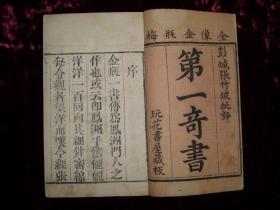 全像金瓶梅
彭城張竹坡批評
第一奇書
玩花書屋藏板
序
金瓶一書傳為鳳洲門人之
作也或云即鳳洲手然纚纚
洋洋一百回內其細針密線
每令觀者望洋而嘆今經張